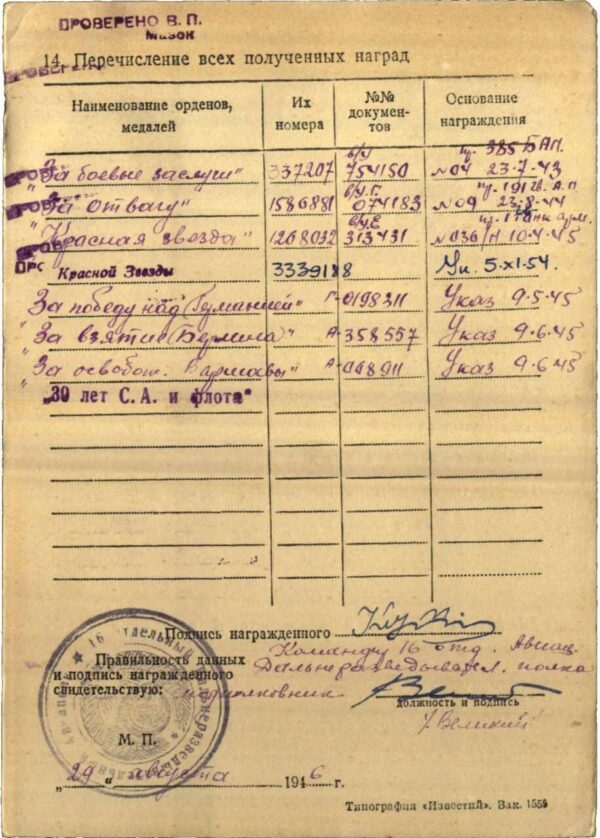 ПРОВЕРЕНО В. П.
Мазок
14. Перечисление всех полученных наград
Наименование орденов, медалей | Их номера | №№ документов | Основание награждения
"За боевые заслуги" 337207 б/у 754150 пр. 385 БАП. №04 23-7-43
"За отвагу" 1586881 074183 №09 23-8-44
"Красная звезда" 1268032 313431 №036/Н 10-4-45
Красной Звезды 3339188 Ук. 5-XI-54.
"За победу над Германией" Г-0198311 Указ 9-5-45
"За взятие Берлина" А-358557 Указ 9-6-45
"За освобож. Варшавы" А- Указ 9-6-45
„30 лет С. А. и флота"
Подпись награжденного
Командир 16 отд. Авиац.
Правильность данных
Дальнеразведывател. полка
и подпись награжденного
свидетельствую: подполковник
должность и подпись
/Великий
М. П.
„29" августа 1946 г.
Типография «Известий». Зак. 1559